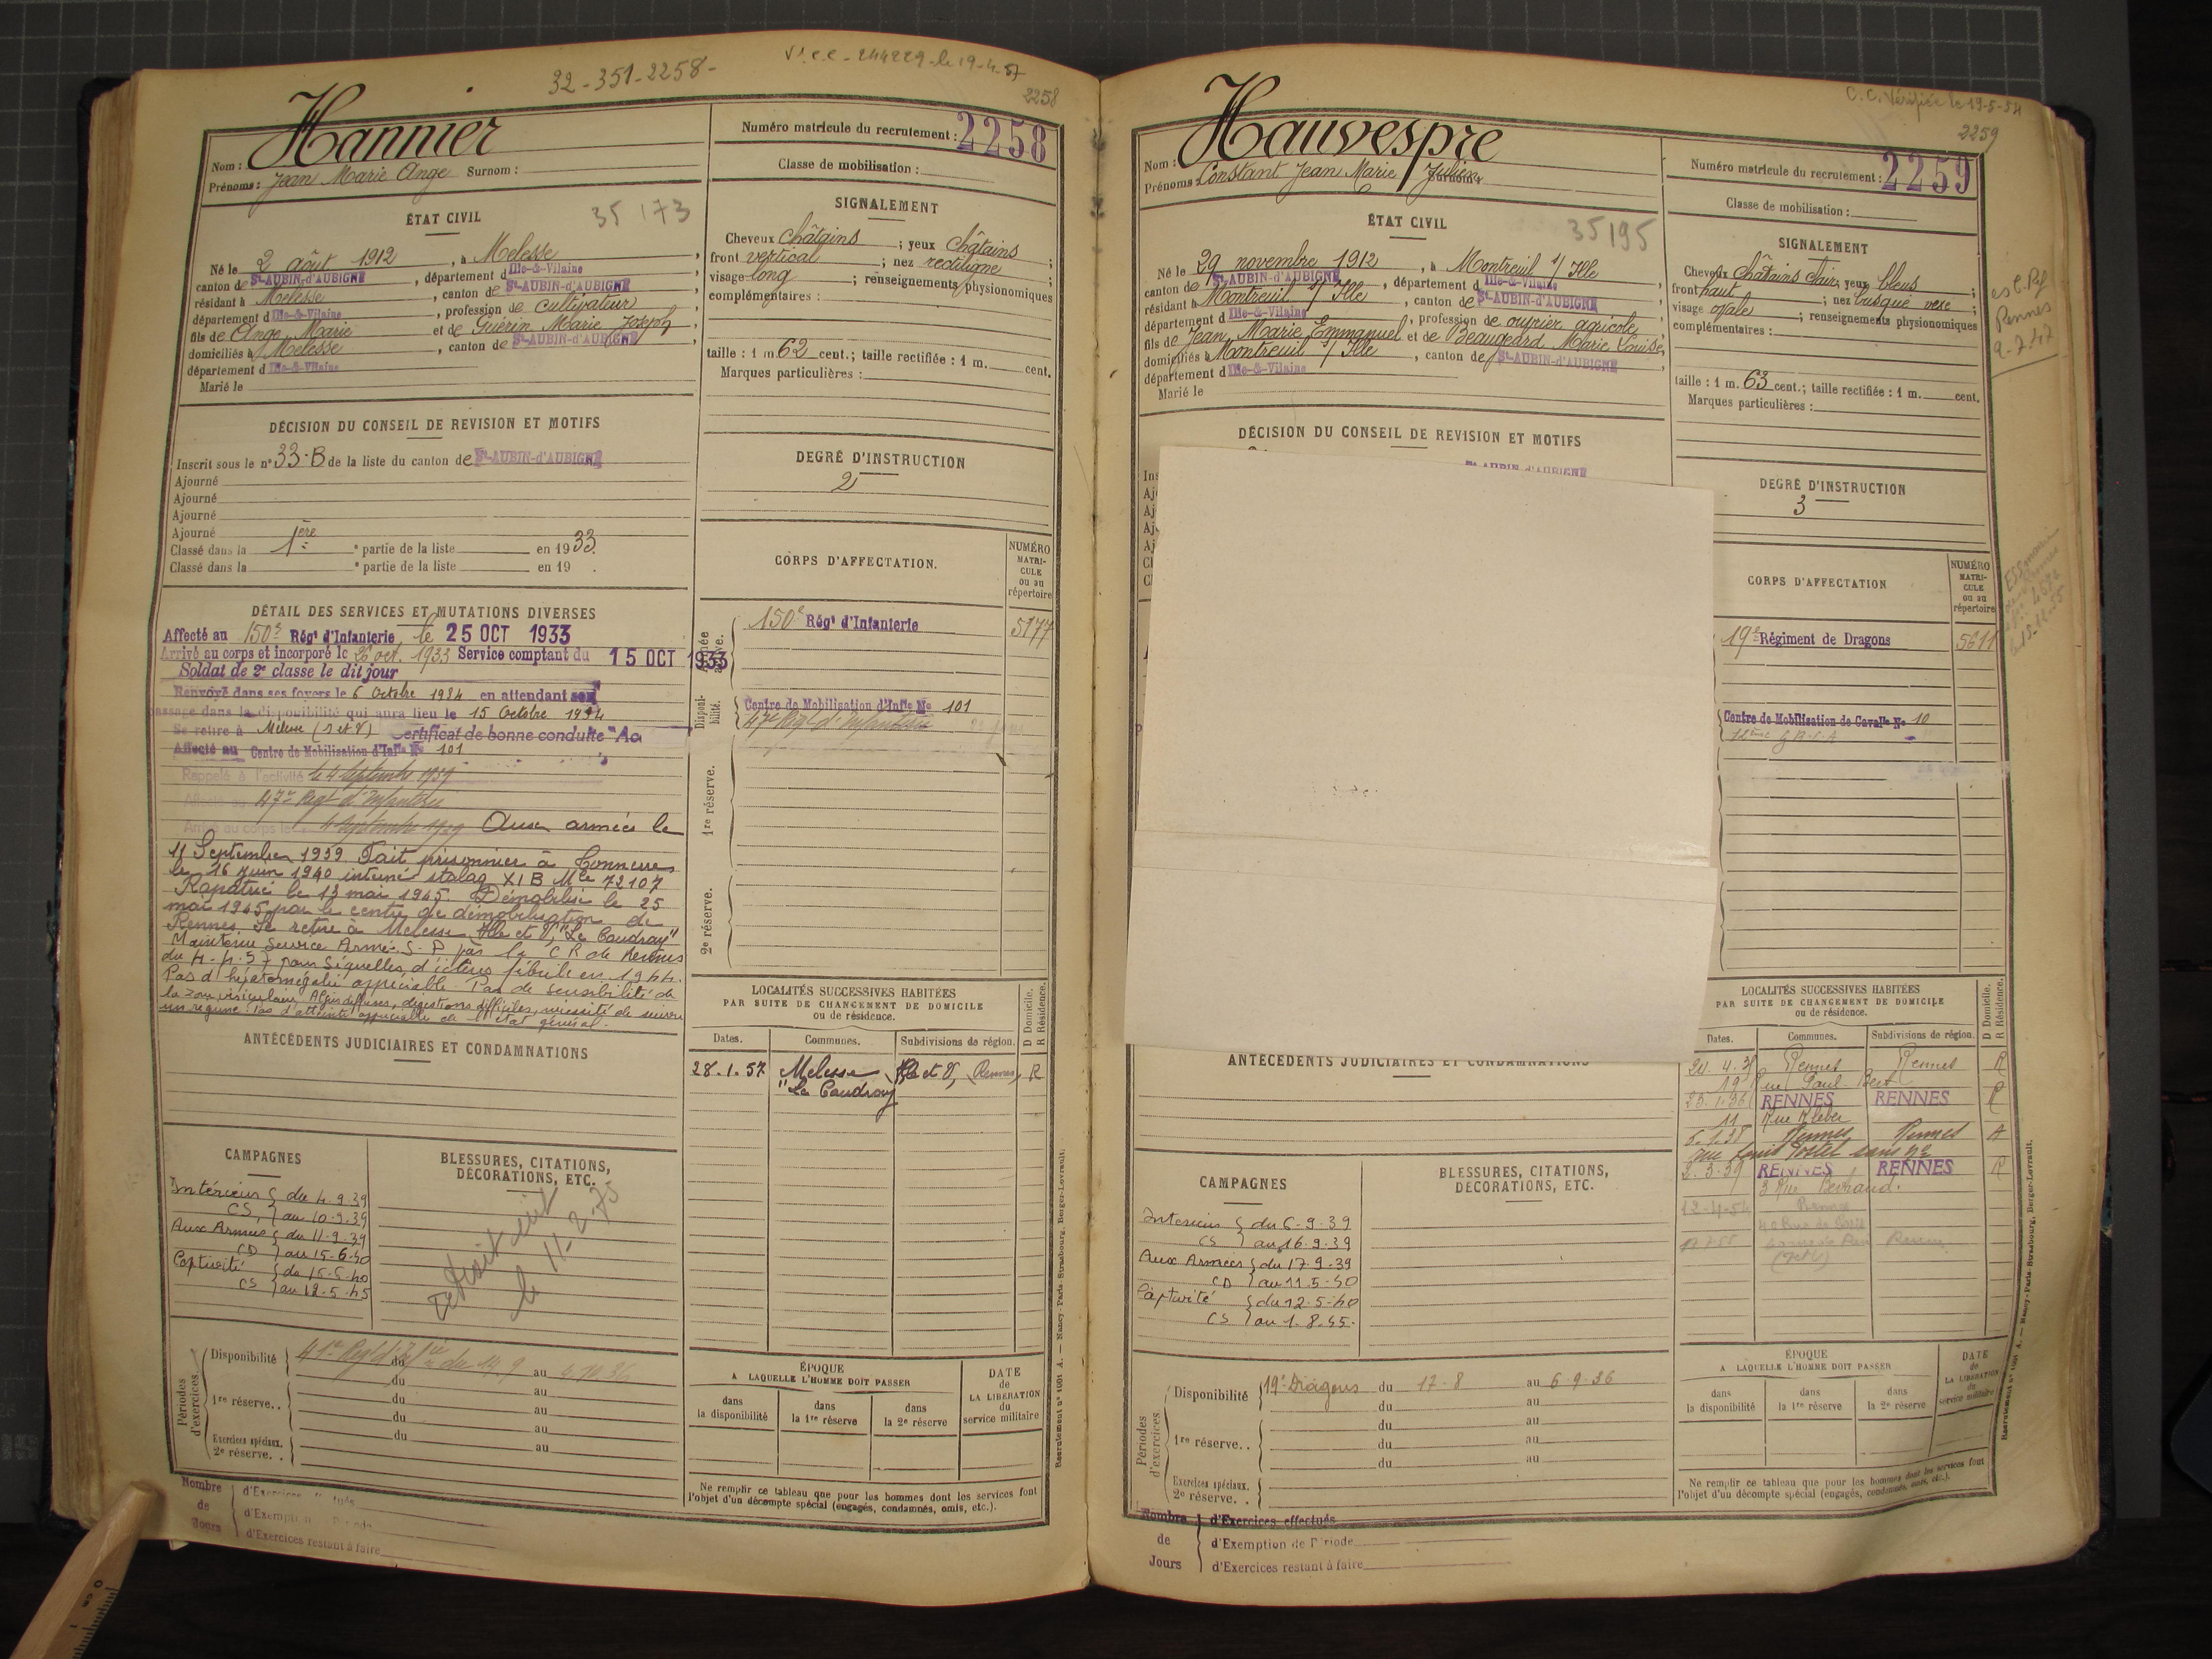 32-351-2258-
2258
Hannier
Nom :
Prénoms : Jean Marie Ange Surnom :
Numéro matricule du recrutement : 2258
Classe de mobilisation :
ÉTAT CIVIL
35 173
Né le 2 août 1912, à Melesse,
canton de St-AUBIN-d'AUBIGNÉ, département d Ille-&-Vilaine
résidant à Melesse, canton de St-AUBIN-d'AUBIGNÉ,
département d Ille-&-Vilaine, profession de cultivateur,
fils de Ange Marie et de Guérin Marie Joseph,
domiciliés à Melesse, canton de St-AUBIN-d'AUBIGNÉ,
département d Ille-&-Vilaine
Marié le
SIGNALEMENT
Cheveux châtains ; yeux châtains
front vertical ; nez rectiligne ;
visage long ; renseignements physionomiques
complémentaires :
taille : 1 m 62 cent.; taille rectifiée : 1 m. cent.
Marques particulières :
DÉCISION DU CONSEIL DE REVISION ET MOTIFS
Inscrit sous le n° 33-B de la liste du canton de St-AUBIN-d'AUBIGNÉ
Ajourné
Ajourné
Ajourné
Ajourné
Classé dans la 1ère partie de la liste en 1933.
Classé dans la e partie de la liste en 19 .
DEGRÉ D'INSTRUCTION
2
DÉTAIL DES SERVICES ET MUTATIONS DIVERSES
Affecté au 150e Régt d'Infanterie, le 25 OCT 1933
Arrivé au corps et incorporé le 26 oct. 1933 Service comptant du 15 OCT 1933
Soldat de 2e classe le dit jour
Renvoyé dans ses foyers le 6 Octobre 1934 en attendant son
passage dans la disponibilité qui aura lieu le 15 Octobre 1934
Se retire à Melesse (I et V) Certificat de bonne conduite "Ac
Affecté au Centre de Mobilisation d'Infie No 101
Rappelé à l'activité le 4 Septembre 1939
47e Regt d'Infanterie
Arrivé au corps le 4 Septembre 1939 Aux armées le
11 Septembre 1939 Fait prisonnier à Connerre
le 16 juin 1940 interné stalag XI B Mle 72107
Rapatrié le 13 mai 1945. Démobilisé le 25
mai 1945 par le centre de démobilisation de
Rennes. Se retire à Melesse Ille et V, "Le Coudray"
Maintenu Service Armé. S. P. par la C R de Rennes
du 4-4-57 pour Séquelles d'ictère fébrile en 1944.
Pas d'hépatomégalie appréciable. Pas de sensibilité de
la zone vésiculaire. Algies diffuses, digestions difficiles, nécessité de suivre
un régime. Pas d'atteinte appréciable de l'état général.
CORPS D'AFFECTATION.
NUMÉRO MATRICULE ou au répertoire
Armée active.
150e Régt d'Infanterie 5177
Disponibilité.
Centre de Mobilisation d'Infie No 101
47e Regt d'Infanterie
1re réserve.
2e réserve.
ANTÉCÉDENTS JUDICIAIRES ET CONDAMNATIONS
LOCALITÉS SUCCESSIVES HABITÉES
PAR SUITE DE CHANGEMENT DE DOMICILE
ou de résidence.
D Domicile.
R Résidence.
Dates. Communes. Subdivisions de région.
28.1.57 Melesse Ille et V, Rennes, R
"Le Coudray"
CAMPAGNES
Intérieur { du 4.9.39
CS, } au 10.9.39
Aux Armées { du 11.9.39
CD } au 15-6-40
Captivité { du 16-5-40
CS } au 12.5.45
BLESSURES, CITATIONS,
DÉCORATIONS, ETC.
le 11-2-75
Périodes d'exercices.
Disponibilité 41e Regt d'Infie du 14 9 au 4 10 36
du au
1re réserve.. du au
du au
du au
Exercices spéciaux.
2e réserve. . au
ÉPOQUE
A LAQUELLE L'HOMME DOIT PASSER
dans la disponibilité
dans la 1re réserve
dans la 2e réserve
DATE
de
LA LIBÉRATION
du
service militaire
Ne remplir ce tableau que pour les hommes dont les services font
l'objet d'un décompte spécial (engagés, condamnés, omis, etc.).
Nombre
de
Jours
d'Exercices
d'Exemption
d'Exercices restant à faire
Recrutement n° 1001 A. — Nancy-Paris-Strasbourg, Berger-Levrault.
C.C. Vérifiée le 19-5-54
2259
Hauvespre
Nom :
Prénoms : Constant Jean Marie Julien
Surnom :
Numéro matricule du recrutement : 2259
Classe de mobilisation :
ÉTAT CIVIL
35195
Né le 29 novembre 1912, à Montreuil s/ Ille
canton de St-AUBIN-d'AUBIGNÉ, département d Ille-&-Vilaine
résidant à Montreuil s/ Ille, canton de St-AUBIN-d'AUBIGNÉ
département d Ille-&-Vilaine, profession de ouvrier agricole,
fils de Jean Marie Emmanuel et de Beaugeard Marie Louise,
domiciliés à Montreuil s/ Ille, canton de St-AUBIN-d'AUBIGNÉ
département d Ille-&-Vilaine
Marié le
SIGNALEMENT
Cheveux châtains clair; yeux bleus
front haut ; nez busqué vexe ;
visage ovale ; renseignements physionomiques
complémentaires :
taille : 1 m. 63 cent.; taille rectifiée : 1 m. cent.
Marques particulières :
Rennes
DÉCISION DU CONSEIL DE REVISION ET MOTIFS
St-AUBIN-d'AUBIGNÉ
DEGRÉ D'INSTRUCTION
3
CORPS D'AFFECTATION
NUMÉRO MATRICULE ou au répertoire
19e Régiment de Dragons 5611
Centre de Mobilisation de Cavalie No 10
ANTÉCÉDENTS JUDICIAIRES ET CONDAMNATIONS
LOCALITÉS SUCCESSIVES HABITÉES
PAR SUITE DE CHANGEMENT DE DOMICILE
ou de résidence.
D Domicile.
R Résidence.
Dates. Communes. Subdivisions de région.
Rennes Rennes R
19 Rue Paul Bert
23.1.36 RENNES RENNES R
11 Rue Kleber
Rennes Rennes
rue Louis Postel sans no
2.3.39 RENNES RENNES R
3 Rue Bertrand.
12-4-54
CAMPAGNES
Intérieur { du 6-9-39
CS } au 16.9.39
Aux Armées { du 17-9-39
CD } au 11.5-40
Captivité { du 12-5-40
CS } au 1.8.45.
BLESSURES, CITATIONS,
DÉCORATIONS, ETC.
Périodes d'exercices
Disponibilité 19e Dragons du 17-8 au 6 9-36
du au
1re réserve.. du au
du au
du au
Exercices spéciaux.
2e réserve. .
ÉPOQUE
A LAQUELLE L'HOMME DOIT PASSER
dans la disponibilité
dans la 1re réserve
dans la 2e réserve
DATE
de
LA LIBÉRATION
du
service militaire
Ne remplir ce tableau que pour les hommes dont les services font
l'objet d'un décompte spécial (engagés, condamnés, omis, etc.).
Nombre
de
Jours
d'Exercices effectués
d'Exemption de Période
d'Exercices restant à faire
Recrutement n° 1001 A. — Nancy-Paris-Strasbourg, Berger-Levrault.